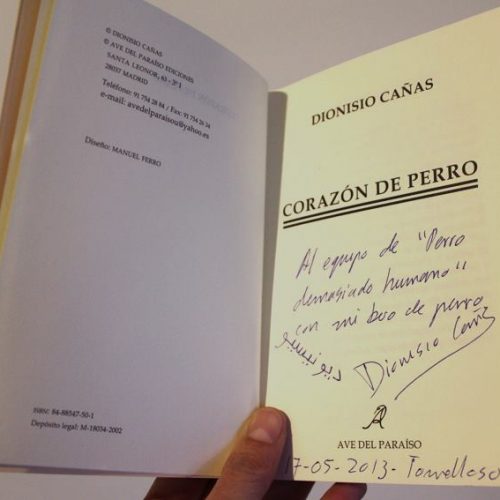 © DIONISIO CAÑAS
© AVE DEL PARAÍSO EDICIONES
SANTA LEONOR, 63 - 2º I
28037 MADRID
Teléfono: 91 754 28 84 / Fax: 91 754 26 24
e-mail: avedelparaisou@yahoo.es
Diseño: MANUEL FERRO
ISBN: 84-88547-50-1
Depósito legal: M-18054-2002
DIONISIO CAÑAS
CORAZÓN DE PERRO
Al equipo de "Perro
demasiado humano"
con mi beso de perro
Dionisio Cañas
AVE DEL PARAÍSO
17-05-2013 - Tomelloso